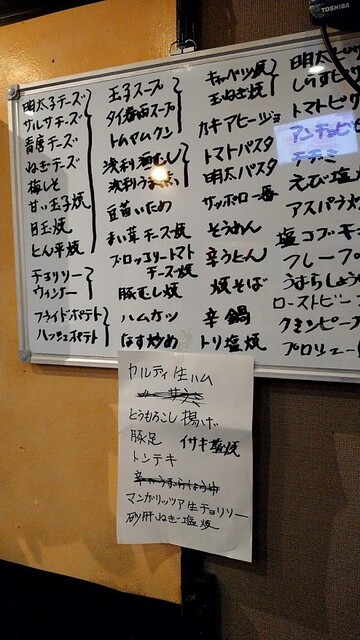 TOSHIBA
明太子チーズ
サルサチーズ
青唐チーズ
ねぎチーズ
梅しそ
甘い玉子焼
目玉焼
とん平焼
チョリソー
ウィンナー
フライドポテト
ハッシュポテト
玉子スープ
タイ春雨スープ
トムヤムクン
浅利酒むし
浅利うま煮
豆苗いため
まい茸チーズ焼
ブロッコリートマト
チーズ焼
豚むし焼
ハムカツ
なす炒め
キャベツ焼
玉ねぎ焼
カキアヒージョ
トマトパスタ
明太パスタ
サッポロ一番
そうめん
辛うどん
焼そば
辛鍋
トリ塩焼
明太
しらす
トマトピ
アンチョビ
チヂミ
えび塩
アスパラ
塩コブキ
フレーフ
うずらしょう
ローストビー
クミンピーア
プロシュー
カルディ生ハム
とうもろこし揚げ
豚足 イサキ塩焼
トンテキ
マンガリッツア生チョリソー
砂肝ねぎ塩焼